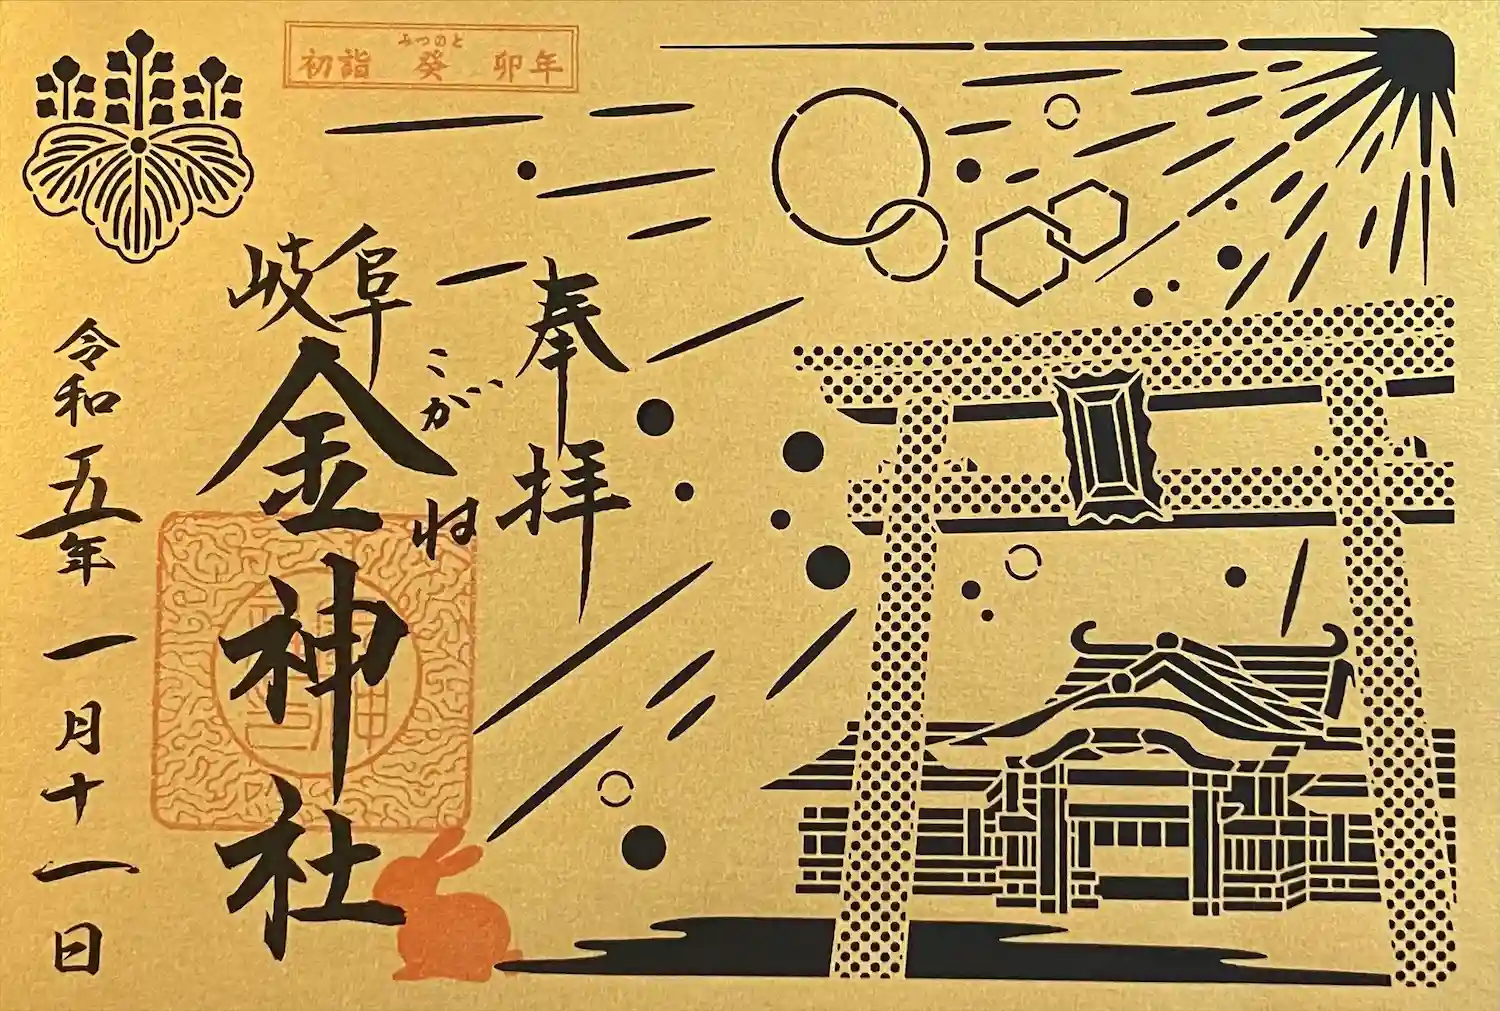 みづのと
初詣 癸 卯年
奉拝
岐阜
金神社
こがね
令和五年一月十一日